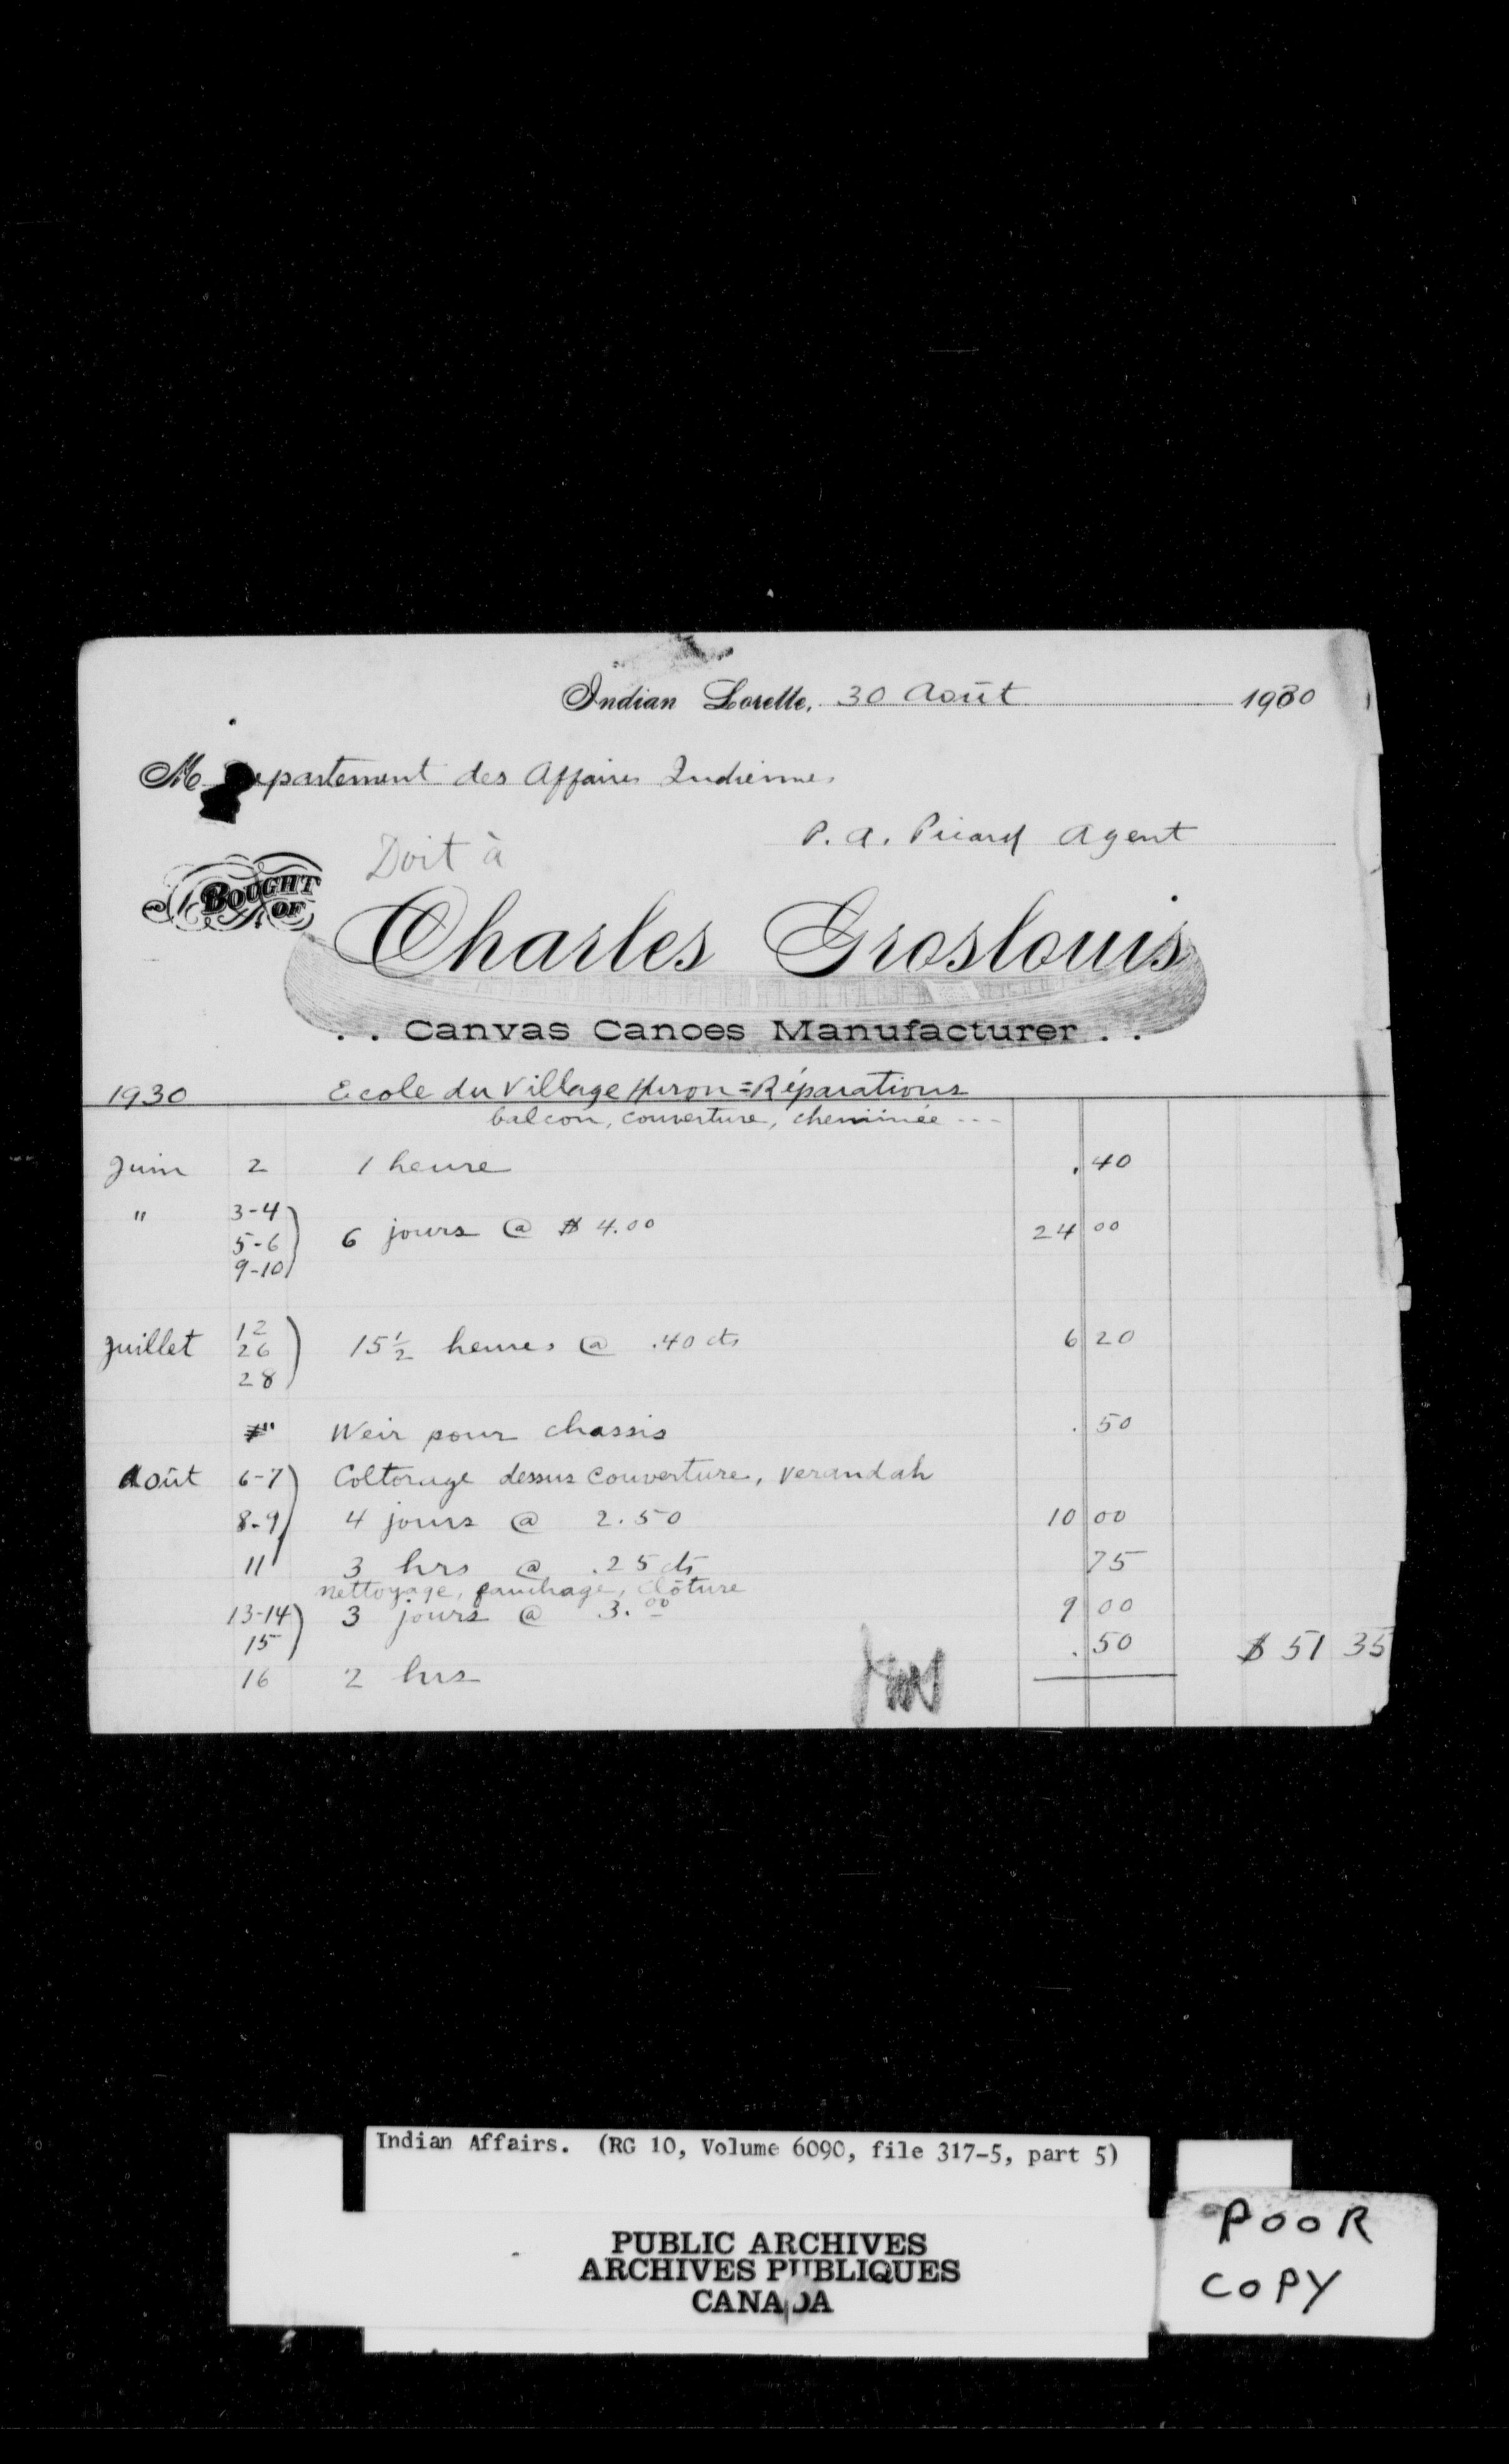 Indian Lorette, 30 Août 1930
M Département des Affaires Indiennes
P. A. Picard Agent
Doit à
BOUGHT OF
Charles Groslouis
. . Canvas Canoes Manufacturer . .
1930 Ecole du Village Huron = Réparations
balcon, couverture, cheminée ---
Juin 2 1 heure .40
" 3-4
5-6 6 jours @ $ 4.00 24 00
9-10
Juillet 12
26 15 ½ heures @ .40 cts 6 20
28
" Weir pour chassis . 50
Août 6-7 Coltorage dessus couverture, verandah
8-9 4 jours @ 2.50 10 00
11 3 hrs @ .25 cts 75
nettoyage, fauchage, clôture
13-14 3 jours @ 3.00 9 00
15 . 50 $ 51 35
16 2 hrs
Indian Affairs. (RG 10, Volume 6090, file 317-5, part 5)
PUBLIC ARCHIVES
ARCHIVES PUBLIQUES
CANADA
POOR
COPY